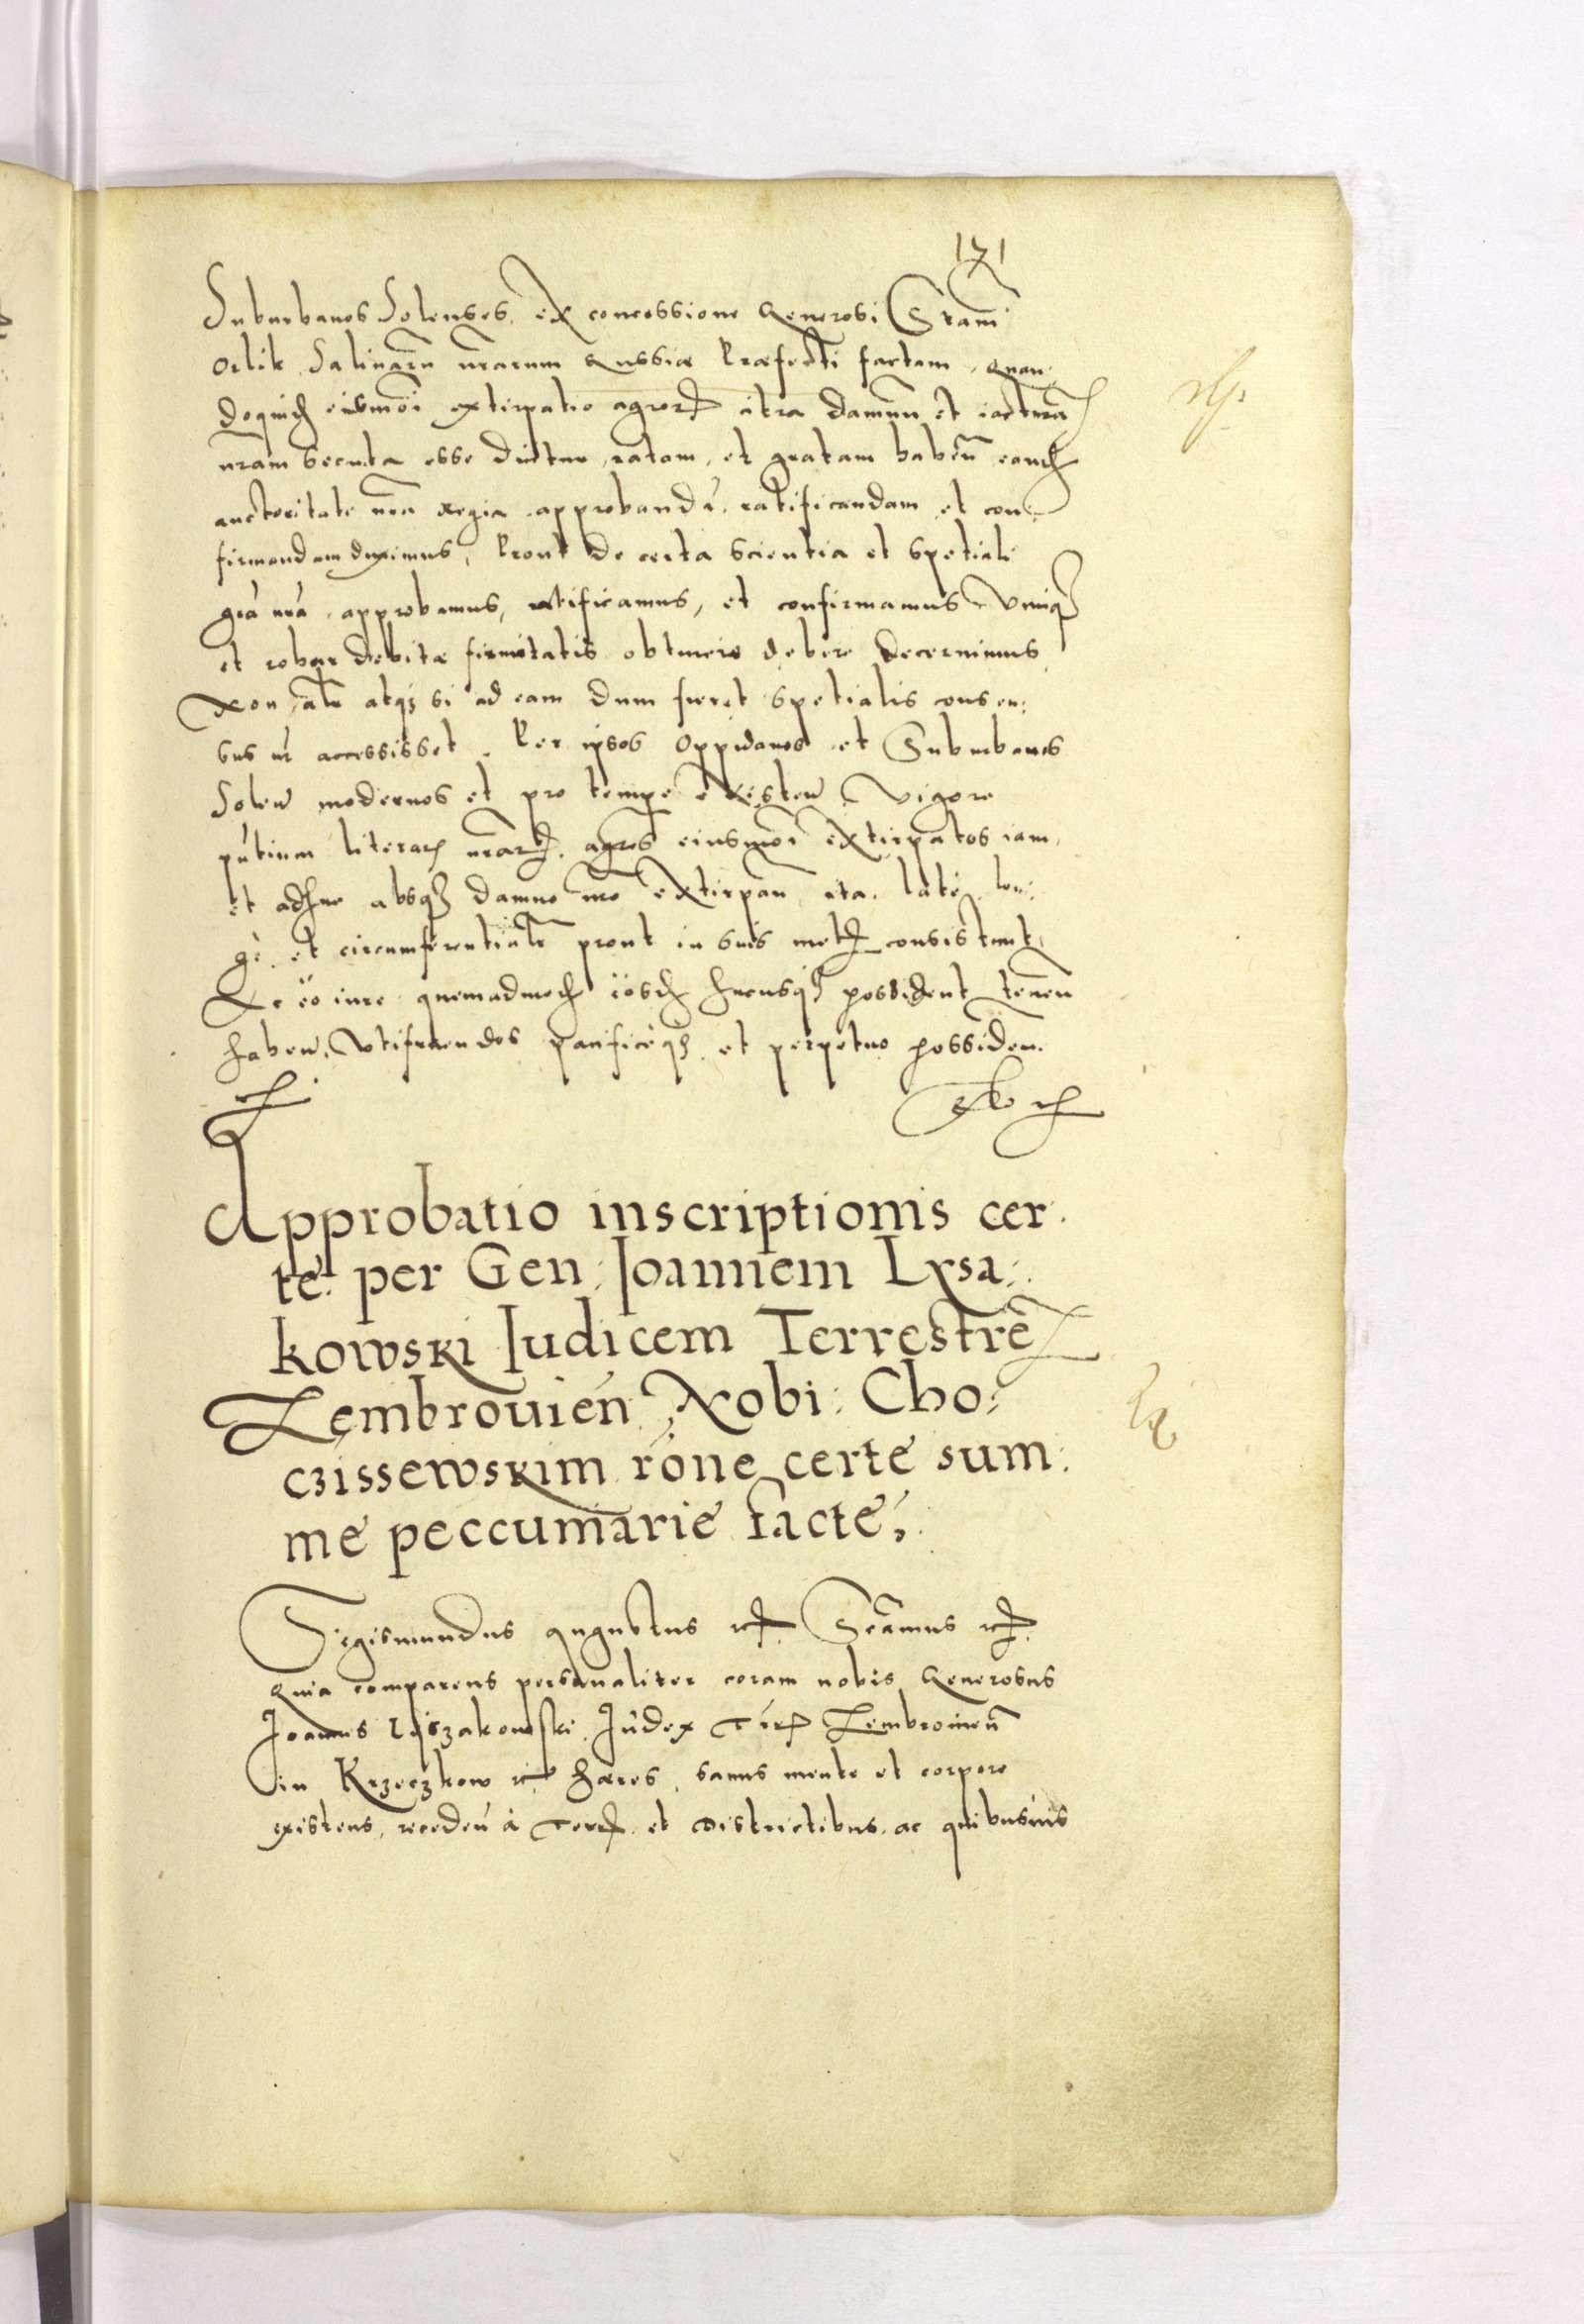 171
Suburbanos Solenses, ex concessione Generosi Stani
Orlik Salinarū nrarum Russiæ Præfecti factam, Quan:
doquidē eiusmoi extirpatio agrorū citra damnū et iacturā
nram secuta esse dicitur, ratam, et gratam habeñ eandē
auctoritate nra Regia approbandā, ratificandam et con:
firmandam duximus, Prout de certa scientia et spetiali
gra nra approbamus, ratificamus, et confirmamus
et robur debitæ firmitatis obtinere debere decernimus
Non alr atqȝ si ad eam dum fieret spetialis consen:
sus nr accessisset. Per ipsos Oppidanos et Suburbanos
Soleñ modernos et pro tempe existeñ vigore
pntium literarū nrarū, agros eiusmoi extirpatos iam,
et adhuc absqȝ damno nro extirpañ ita late, lon:
ge, et circumferentialr prout in suis metis consistunt,
Ac eo iure quemadmodū eosdē hucusqȝ possident teneñ
habeñ, Utifruendos pacificeqȝ et perpetuo possideñ.
Approbatio inscriptionis cer:
te per Gen: Joannem Lysa:
kowski Judicem Terrestrē
Zembrouień Nobi: Cho:
czissewskim rône certe sum:
me peccuniarie facte,
Sigismundus Augustus etc. Sctamus etc.
Quia comparens personaliter coram nobis Generosus
Joannes Lyszakowski, Judex Terr̃ Zembrouieñ
in Krzeczkow etc hæres, sanus mente et corpore
existens, recedeñ à Terris et Districtibus, ac quibusuis